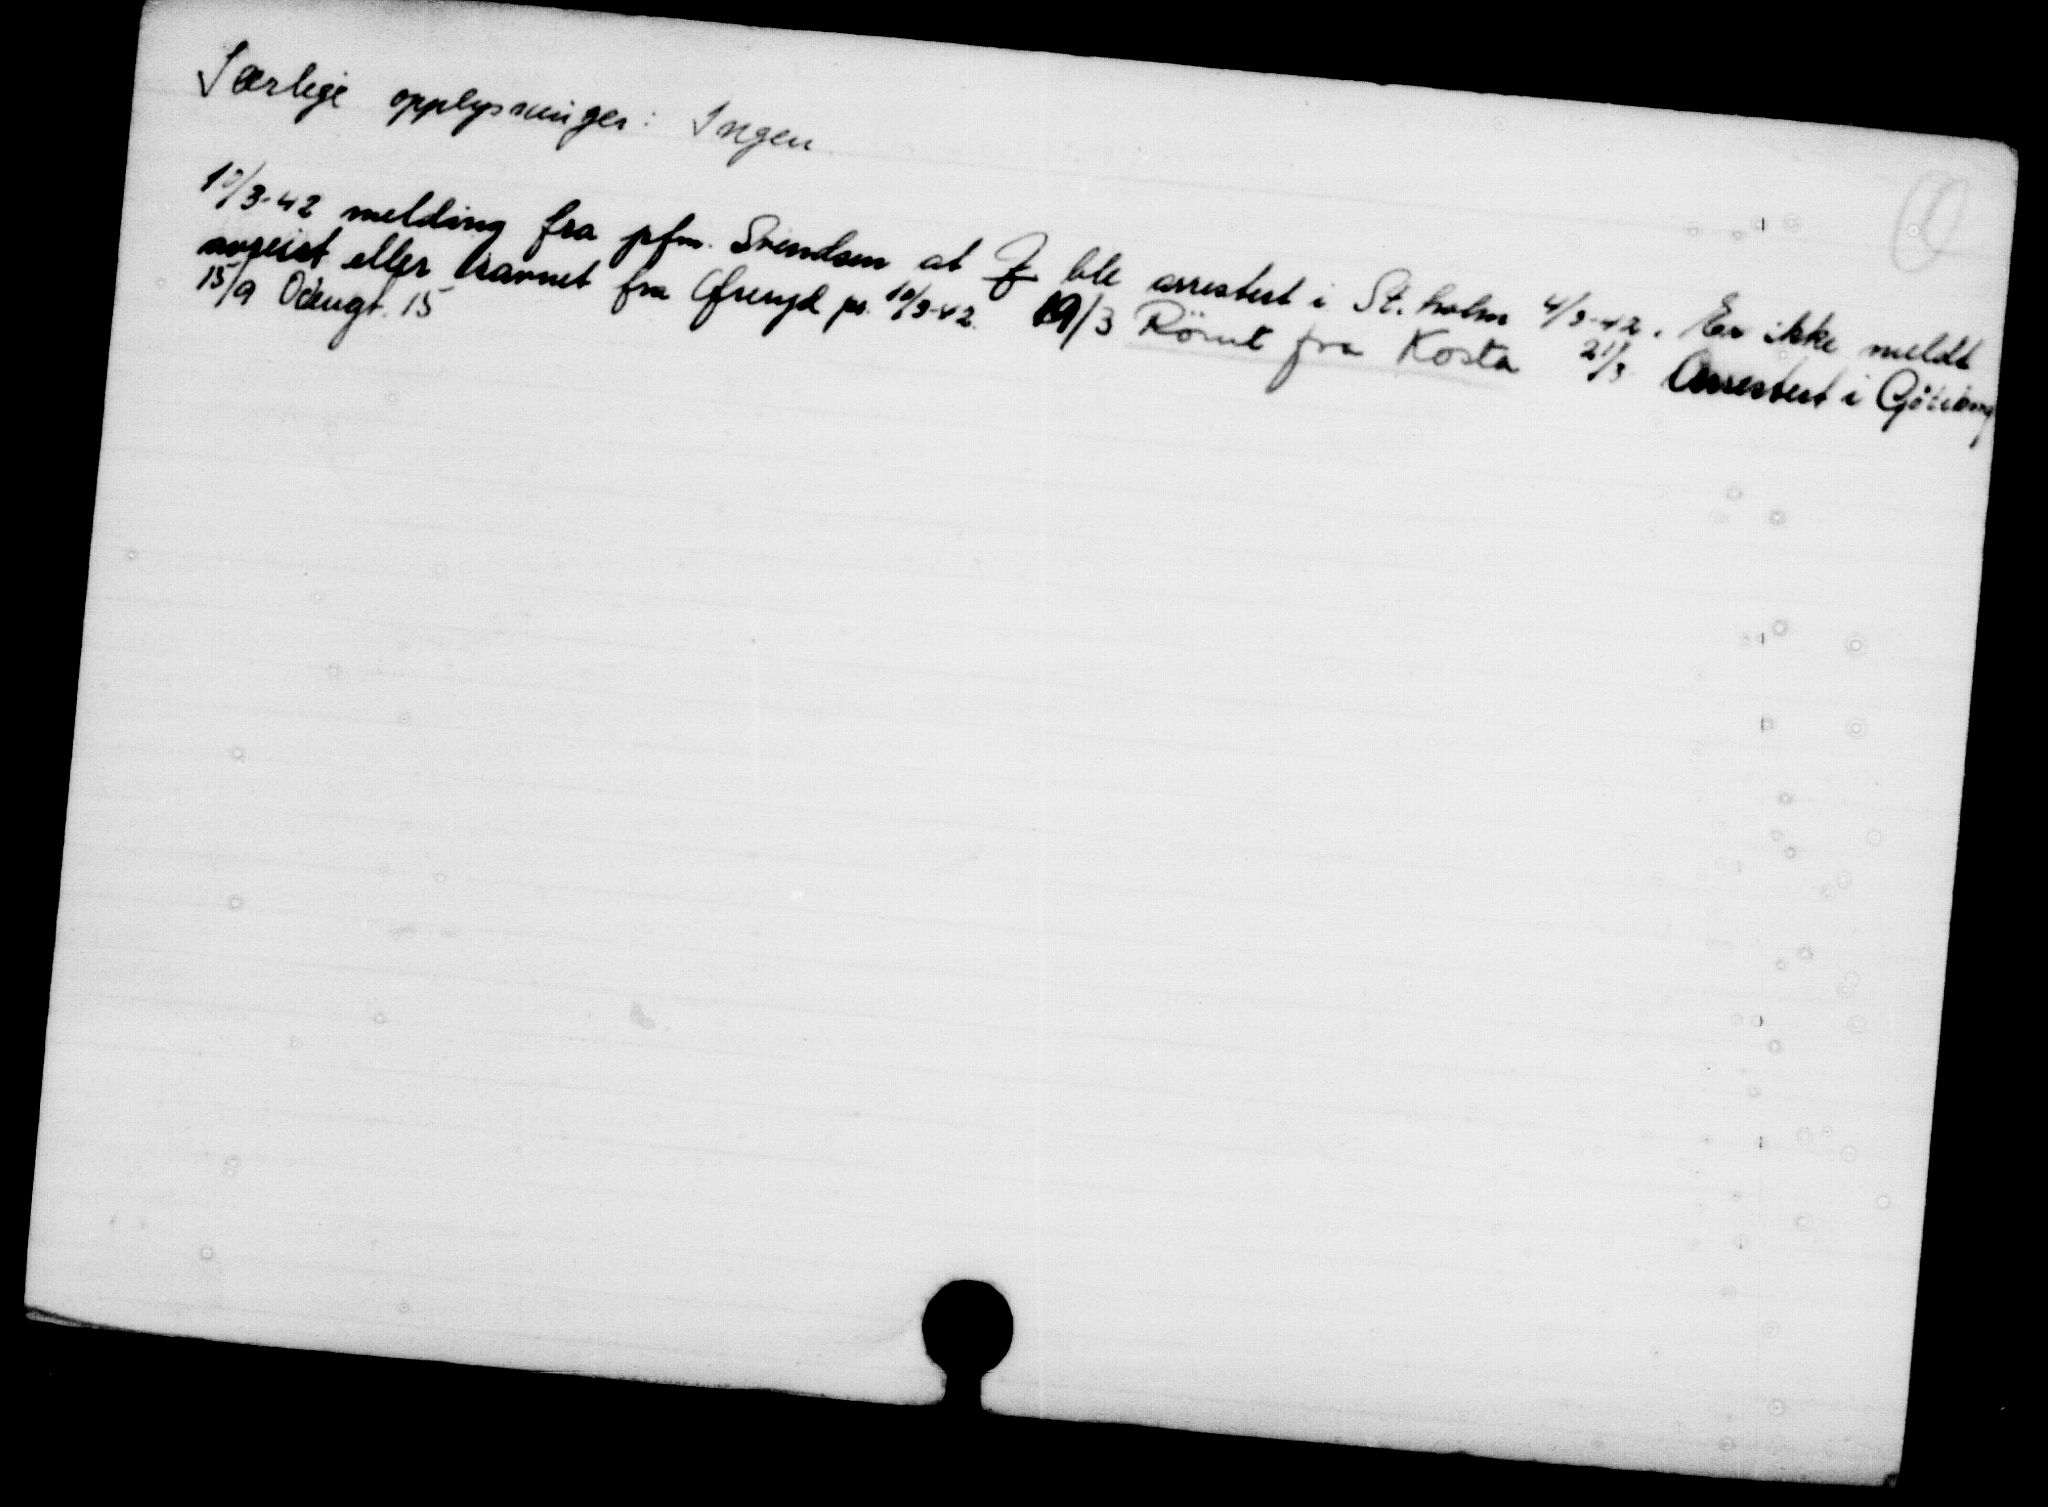 Særlige opplysninger: Ingen.
10/3-42 melding fra pfm. Svendsen at J ble arrestert i St.holm 4/3-42. Er ikke meldt
avreist eller savnet fra Öreryd pr. 10/3-42. 19/3 Römt fra Kosta 21/3 Arrestert i Göteborg
15/9 Odengt. 15